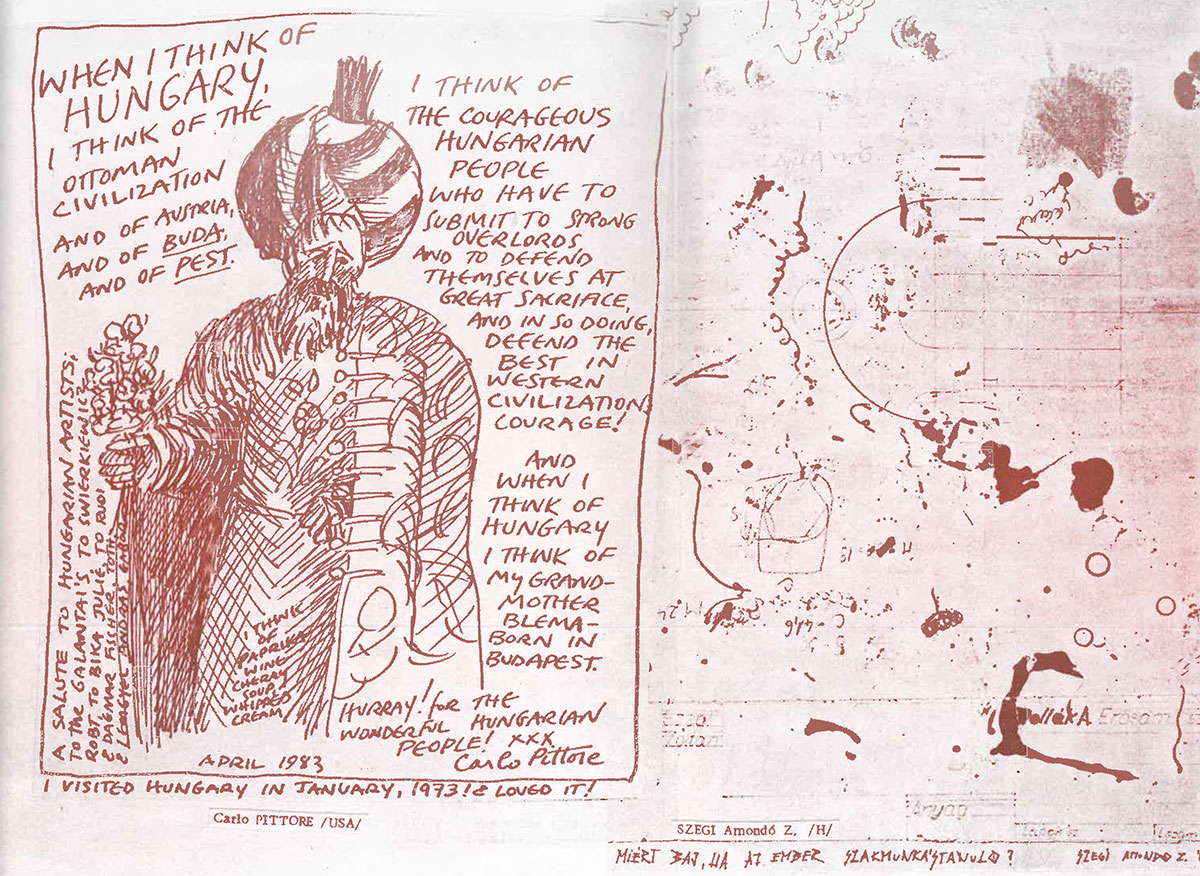 WHEN I THINK OF
HUNGARY,
I THINK OF THE
OTTOMAN
CIVILIZATION
AND OF AUSTRIA,
AND OF BUDA,
AND OF PEST.
I THINK OF
THE COURAGEOUS
HUNGARIAN
PEOPLE
WHO HAVE TO
SUBMIT TO STRONG
OVERLORDS,
AND TO DEFEND
THEMSELVES AT
GREAT SACRIFICE,
AND IN SO DOING,
DEFEND THE
BEST IN
WESTERN
CIVILIZATION,
COURAGE!
AND
WHEN I
THINK OF
HUNGARY
I THINK OF
MY GRAND-
MOTHER
BLEMA-
BORN IN
BUDAPEST.
A SALUTE TO HUNGARIAN ARTISTS:
TO THE GALANTAI'S TO SWIERKIEWICZ
ROBT. TO BIKA JULIE, TO RUDI
& DAGMAR FISCHER, TOTH
& LENGYEL ANDRAS
I THINK
OF
PAPRIKA
WINE
CHERRY
SOUP
WHIPPED
CREAM
HURRAY! FOR THE
WONDERFUL HUNGARIAN
PEOPLE! XXX
Carlo Pittore
APRIL 1983
I VISITED HUNGARY IN JANUARY, 1973! & LOVED IT!
Carlo PITTORE /USA/
C-446
Anyag
SZEGI Amondó Z. /H/
MIÉRT BAJ, HA AZ EMBER SZAKMUNKÁSTANULÓ? SZEGI AMONDÓ Z.